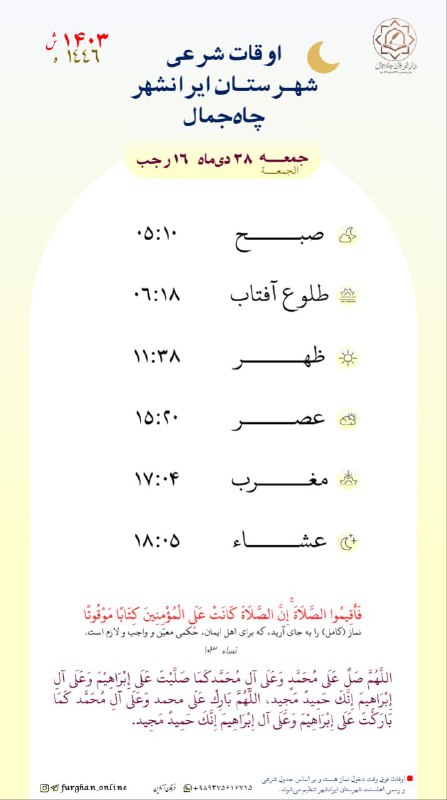 ۱۴۰۳ ش
۱۴۴۶ ه
اوقات شرعی
شهرستان ایرانشهر
چاه‌جمال
جمعه ۲۸ دی‌ماه ۱۶ رجب
الجمعة
صبح ۰۵:۱۰
طلوع آفتاب ۰۶:۱۸
ظهر ۱۱:۳۸
عصر ۱۵:۲۰
مغرب ۱۷:۰۴
عشاء ۱۸:۰۵
فَأَقِيمُوا الصَّلَاةَ ۚ إِنَّ الصَّلَاةَ كَانَتْ عَلَى الْمُؤْمِنِينَ كِتَابًا مَوْقُوتًا
نماز (کامل) را به جای آرید، که برای اهل ایمان، حُکمی معیّن و واجب و لازم است.
نساء ۱۰۳
اللَّهُمَّ صَلِّ عَلَى مُحَمَّدٍ وَعَلَى آلِ مُحَمَّدٍ كَمَا صَلَّيْتَ عَلَى إِبْرَاهِيْمَ وَعَلَى آلِ
إِبْرَاهِيمَ إِنَّكَ حَمِيدٌ مَجِيد، اللَّهُمَّ بَارِكْ عَلَى محمد وَعَلَى آلِ مُحَمَّد كَمَا
بَارَكْتَ عَلَى إِبْرَاهِيْمَ وَعَلَى آل إِبْرَاهِيمَ إِنَّكَ حَمِيدٌ مَجِيد.
اوقات فوق وقت دخول نماز هست و بر اساس جدول شرعی
و رسمی اهلسنت شهرستان ایرانشهر تنظیم می‌شوند.
furghan_online فرقان آنلاین +۹۸۹۳۷۵۶۱۶۷۱۵